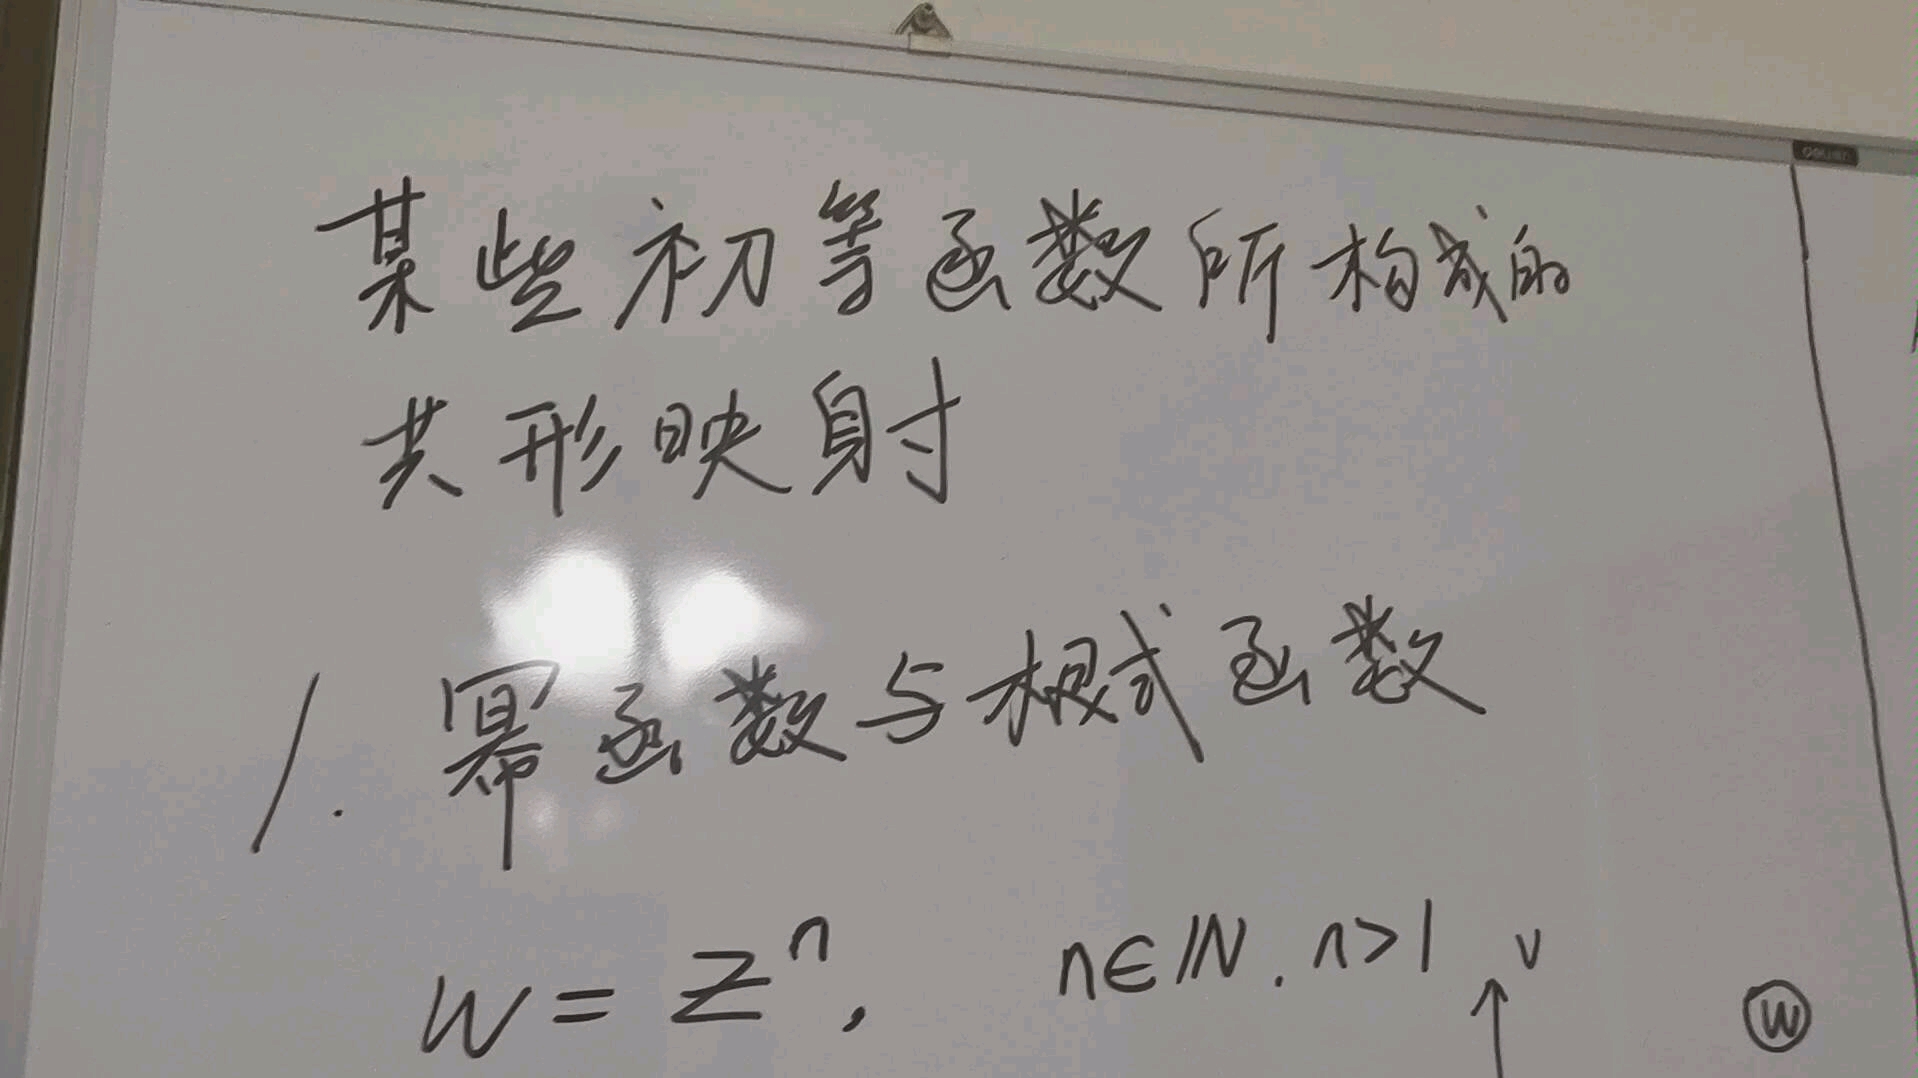 某些初等函数所构成的
共形映射
1. 幂函数与根式函数
w = z^n, n∈ℕ. n>1
v
w